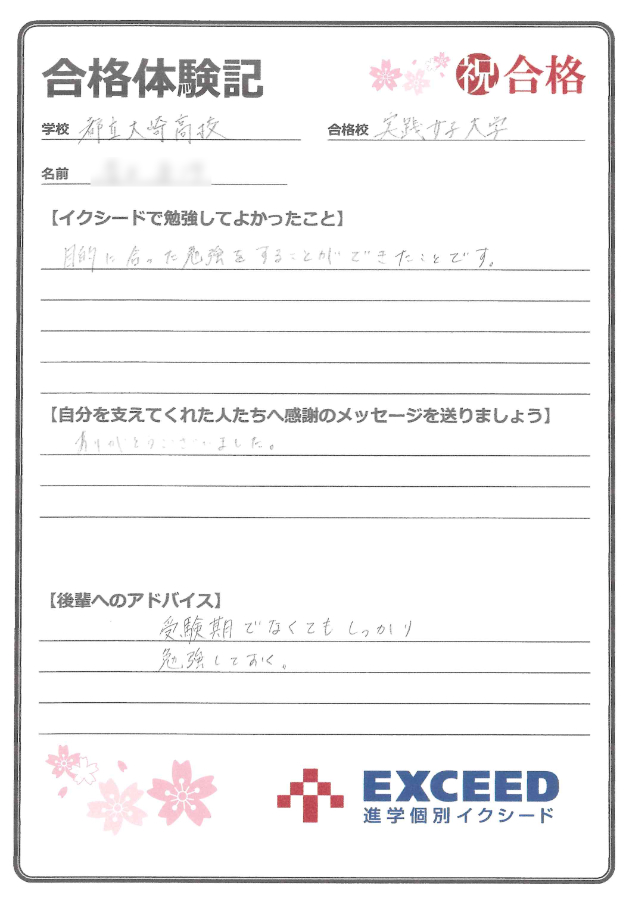 合格体験記
祝合格
学校 都立大崎高校
合格校 実践女子大学
名前
【イクシードで勉強してよかったこと】
目的に合った勉強をすることができたことです。
【自分を支えてくれた人たちへ感謝のメッセージを送りましょう】
ありがとうございました。
【後輩へのアドバイス】
受験期でなくてもしっかり
勉強しておく。
EXCEED
進学個別イクシード